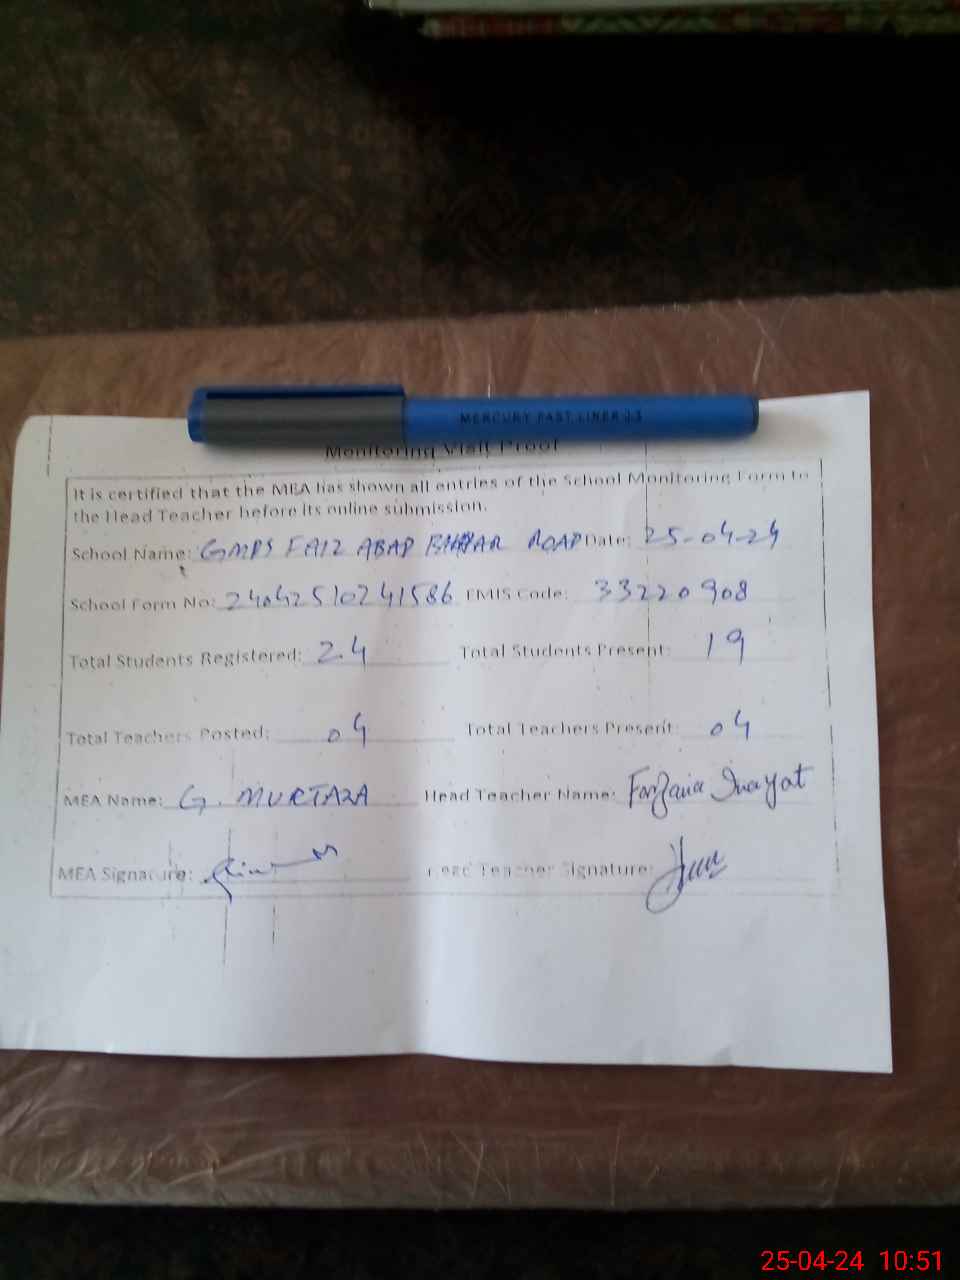 MERCURY FAST LINER J.J
Monitoring Visit Proof
It is certified that the MEA has shown all entries of the School Monitoring Form to
the Head Teacher before its online submission.
School Name: GMPS FAIZ ABAD ROAD Date: 25-04-24
School Form No: 24042510241586 EMIS Code: 33220908
Total Students Registered: 24 Total Students Present: 19
Total Teachers Posted: 04 Total Teachers Present: 04
MEA Name: G. MURTAZA Head Teacher Name: Farzana Inayat
MEA Signature: Head Teacher Signature:
25-04-24 10:51